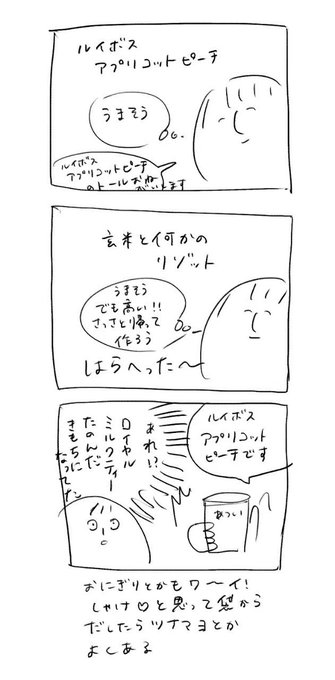 ルイボス
アプリコットピーチ
うまそう
ルイボス
アプリコットピーチ
のトールおねがいします
玄米と何かの
リゾット
うまそう
でも高い!!
さっさと帰って
作ろう
はらへった〜
ルイボス
アプリコット
ピーチです
あれ!?
ロイヤル
ミルクティー
たのんだ
きもちに
なってた
あつい
おにぎりとかもワーイ!
しゃけ♡と思って袋から
だしたらツナマヨとか
よくある